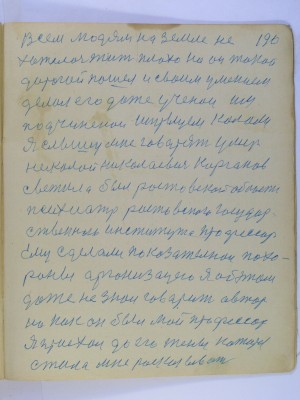 Всем людям на земле не 190
хотелос жит плохо но он такой
дорогой пошел и своим умением
делал его даже ученой им
подчиненой
Я слышу мне говарят умер
Николай Николаевич Карганов
светила был ростовской области
психиатр ростовского государ-
ственного института професор
Ему сделали показательной похо-
роны арганизацего я об етом
даже не знои говарит автор
но как он был мой професор
я приехал до его жены каторая
стала мне расказыват